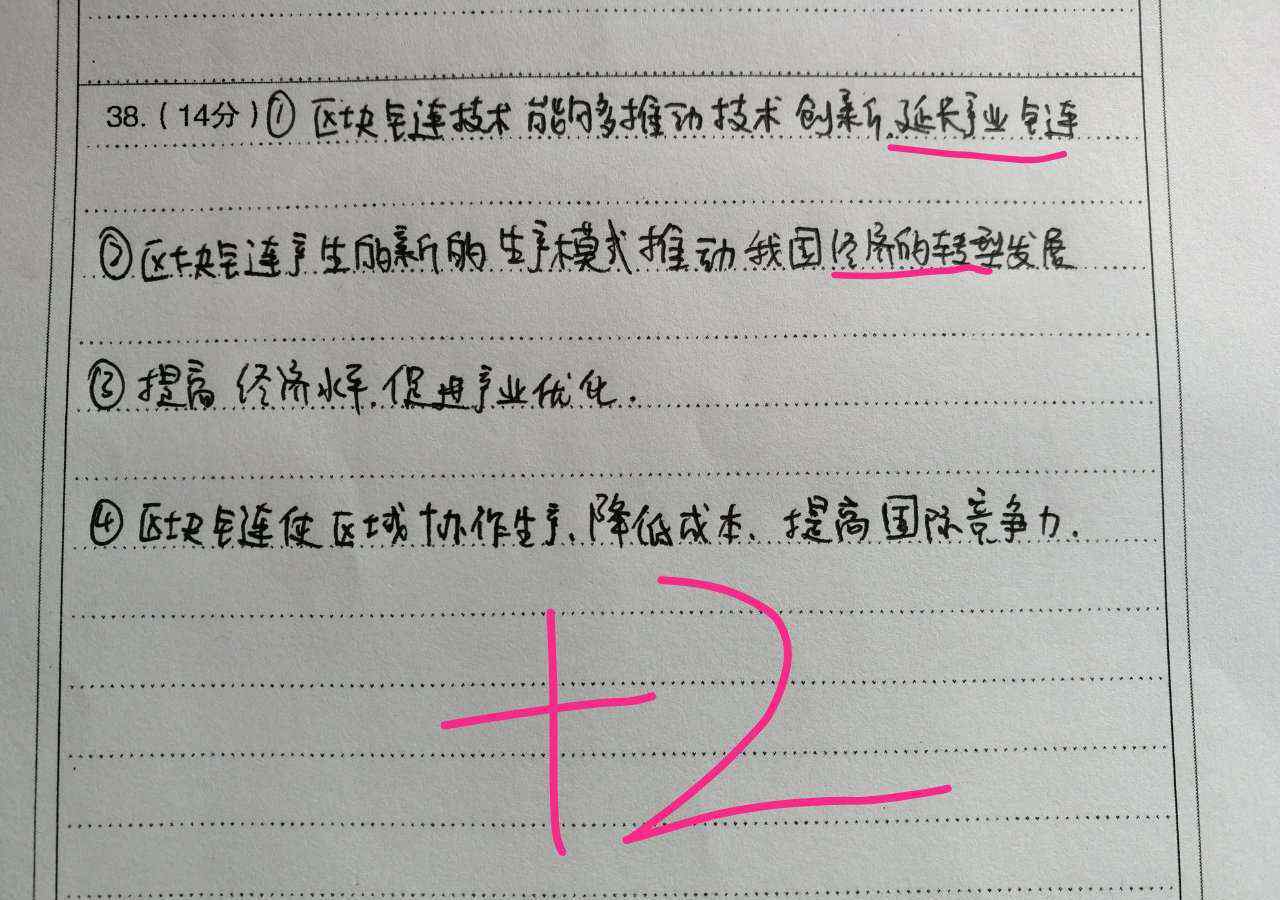 38.(14分)① 区块链技术能够推动技术创新,延长产业链
② 区块链产生的新的生产模式推动我国经济的转型发展
③ 提高经济水平,促进产业优化.
④ 区块链使区域协作生产,降低成本,提高国际竞争力.
+2